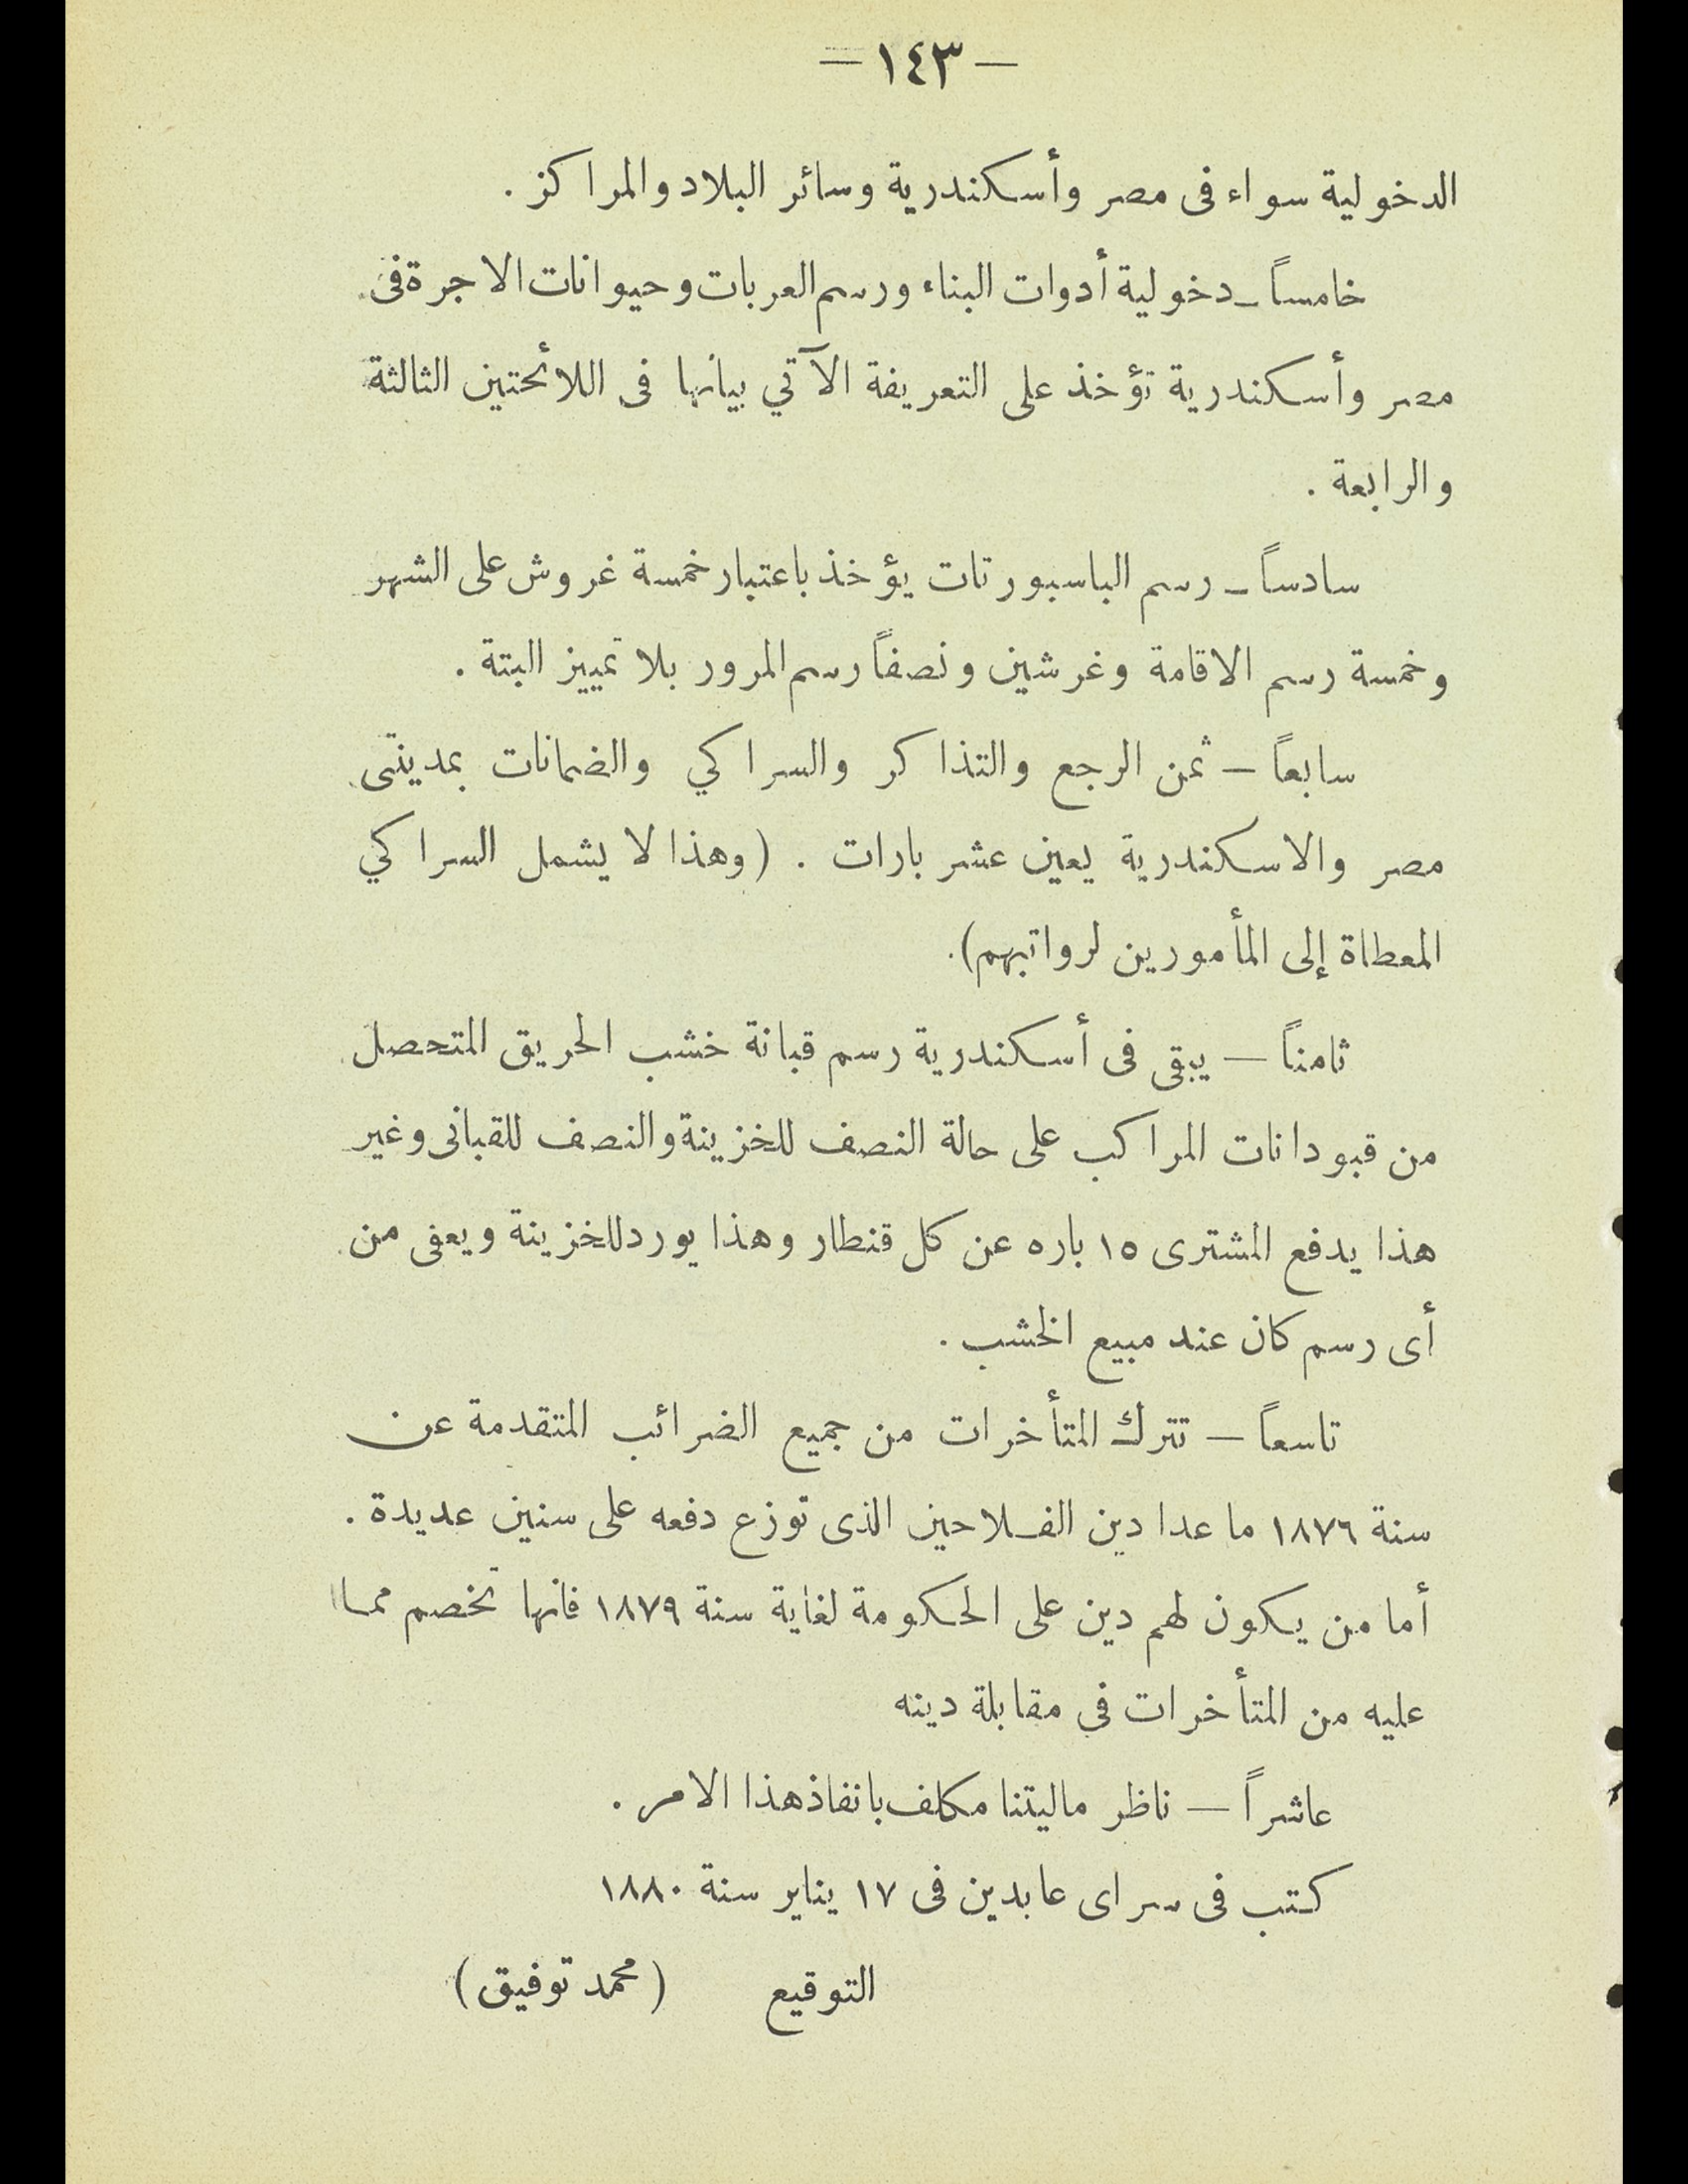 — ١٤٣ —
الدخولية سواء فى مصر وأسكندرية وسائر البلاد والمراكز .
خامساً ـ دخولية أدوات البناء ورسم العربات وحيوانات الاجرة فى
مصر وأسكندرية تؤخذ على التعريفة الآتي بيانها فى اللائحتين الثالثة
والرابعة .
سادساً ـ رسم الباسبورتات يؤخذ باعتبار خمسة غروش على الشهر
وخمسة رسم الاقامة وغرشين ونصفاً رسم المرور بلا تمييز البتة .
سابعاً — ثمن الرجع والتذاكر والسراكي والضمانات بمدينتى
مصر والاسكندرية يعين عشر بارات . (وهذا لا يشمل السراكي
المعطاة إلى المأمورين لرواتبهم).
ثامناً — يبقى فى أسكندرية رسم قبانة خشب الحريق المتحصل
من قبودانات المراكب على حالة النصف للخزينة والنصف للقبانى وغير
هذا يدفع المشترى ١٥ باره عن كل قنطار وهذا يورد للخزينة ويعفى من
أى رسم كان عند مبيع الخشب .
تاسعاً — تترك المتأخرات من جميع الضرائب المتقدمة عن
سنة ١٨٧٦ ما عدا دين الفلاحين الذى توزع دفعه على سنين عديدة .
أما من يكون لهم دين على الحكومة لغاية سنة ١٨٧٩ فانها تخصم مما
عليه من المتأخرات فى مقابلة دينه
عاشراً — ناظر ماليتنا مكلف بانفاذ هذا الامر .
كتب فى سراى عابدين فى ١٧ يناير سنة ١٨٨٠
التوقيع (محمد توفيق)